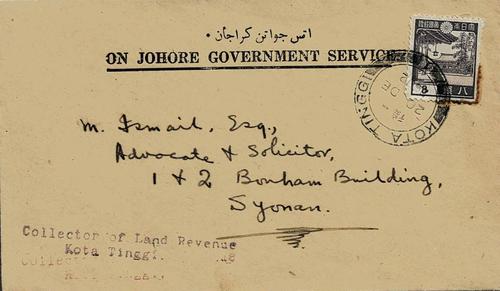 اتس جواتن كراجأن •
ON JOHORE GOVERNMENT SERVICE
大日本帝國郵便
8
KOTA TINGGI
M. Ismail, Esq.,
Advocate & Solicitor,
1 & 2 Bonham Building,
Syonan.
Collector of Land Revenue
Kota Tinggi.